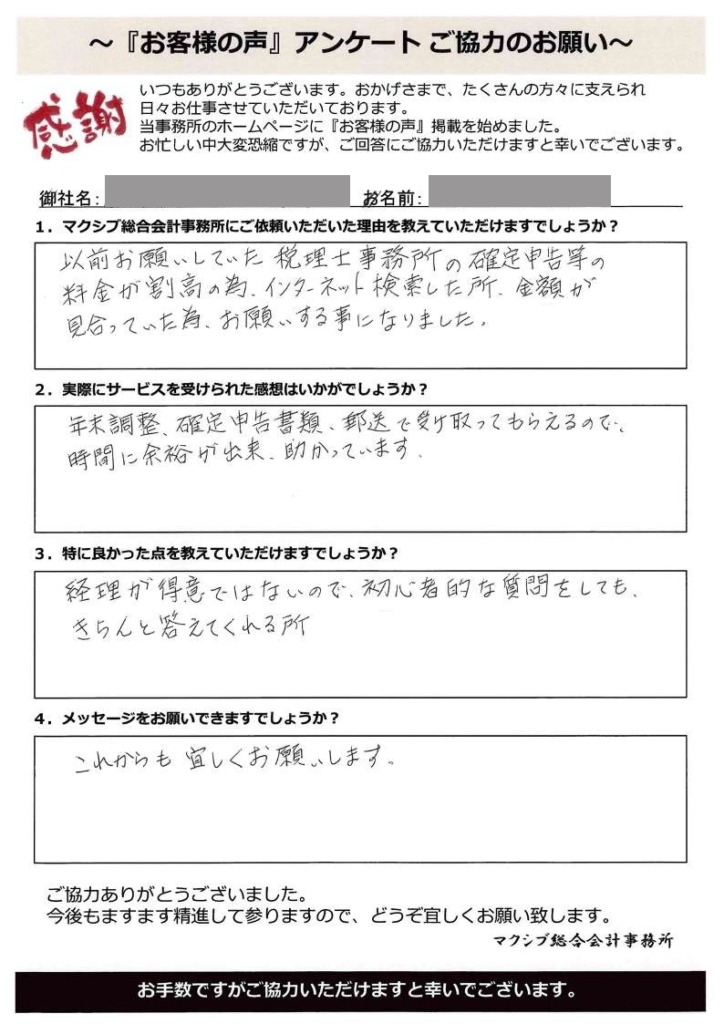 ～『お客様の声』アンケート ご協力のお願い～
感謝
いつもありがとうございます。おかげさまで、たくさんの方々に支えられ
日々お仕事させていただいております。
当事務所のホームページに『お客様の声』掲載を始めました。
お忙しい中大変恐縮ですが、ご回答にご協力いただけますと幸いでございます。
御社名: お名前:
1．マクシブ総合会計事務所にご依頼いただいた理由を教えていただけますでしょうか？
以前お願いしていた税理士事務所の確定申告等の
料金が割高の為、インターネット検索した所、金額が
見合っていた為、お願いする事になりました。
2．実際にサービスを受けられた感想はいかがでしょうか？
年末調整、確定申告書類、郵送で受け取ってもらえるので、
時間に余裕が出来、助かっています。
3．特に良かった点を教えていただけますでしょうか？
経理が得意ではないので、初心者的な質問をしても、
きちんと答えてくれる所
4．メッセージをお願いできますでしょうか？
これからも宜しくお願いします。
ご協力ありがとうございました。
今後もますます精進して参りますので、どうぞ宜しくお願い致します。
マクシブ総合会計事務所
お手数ですがご協力いただけますと幸いでございます。